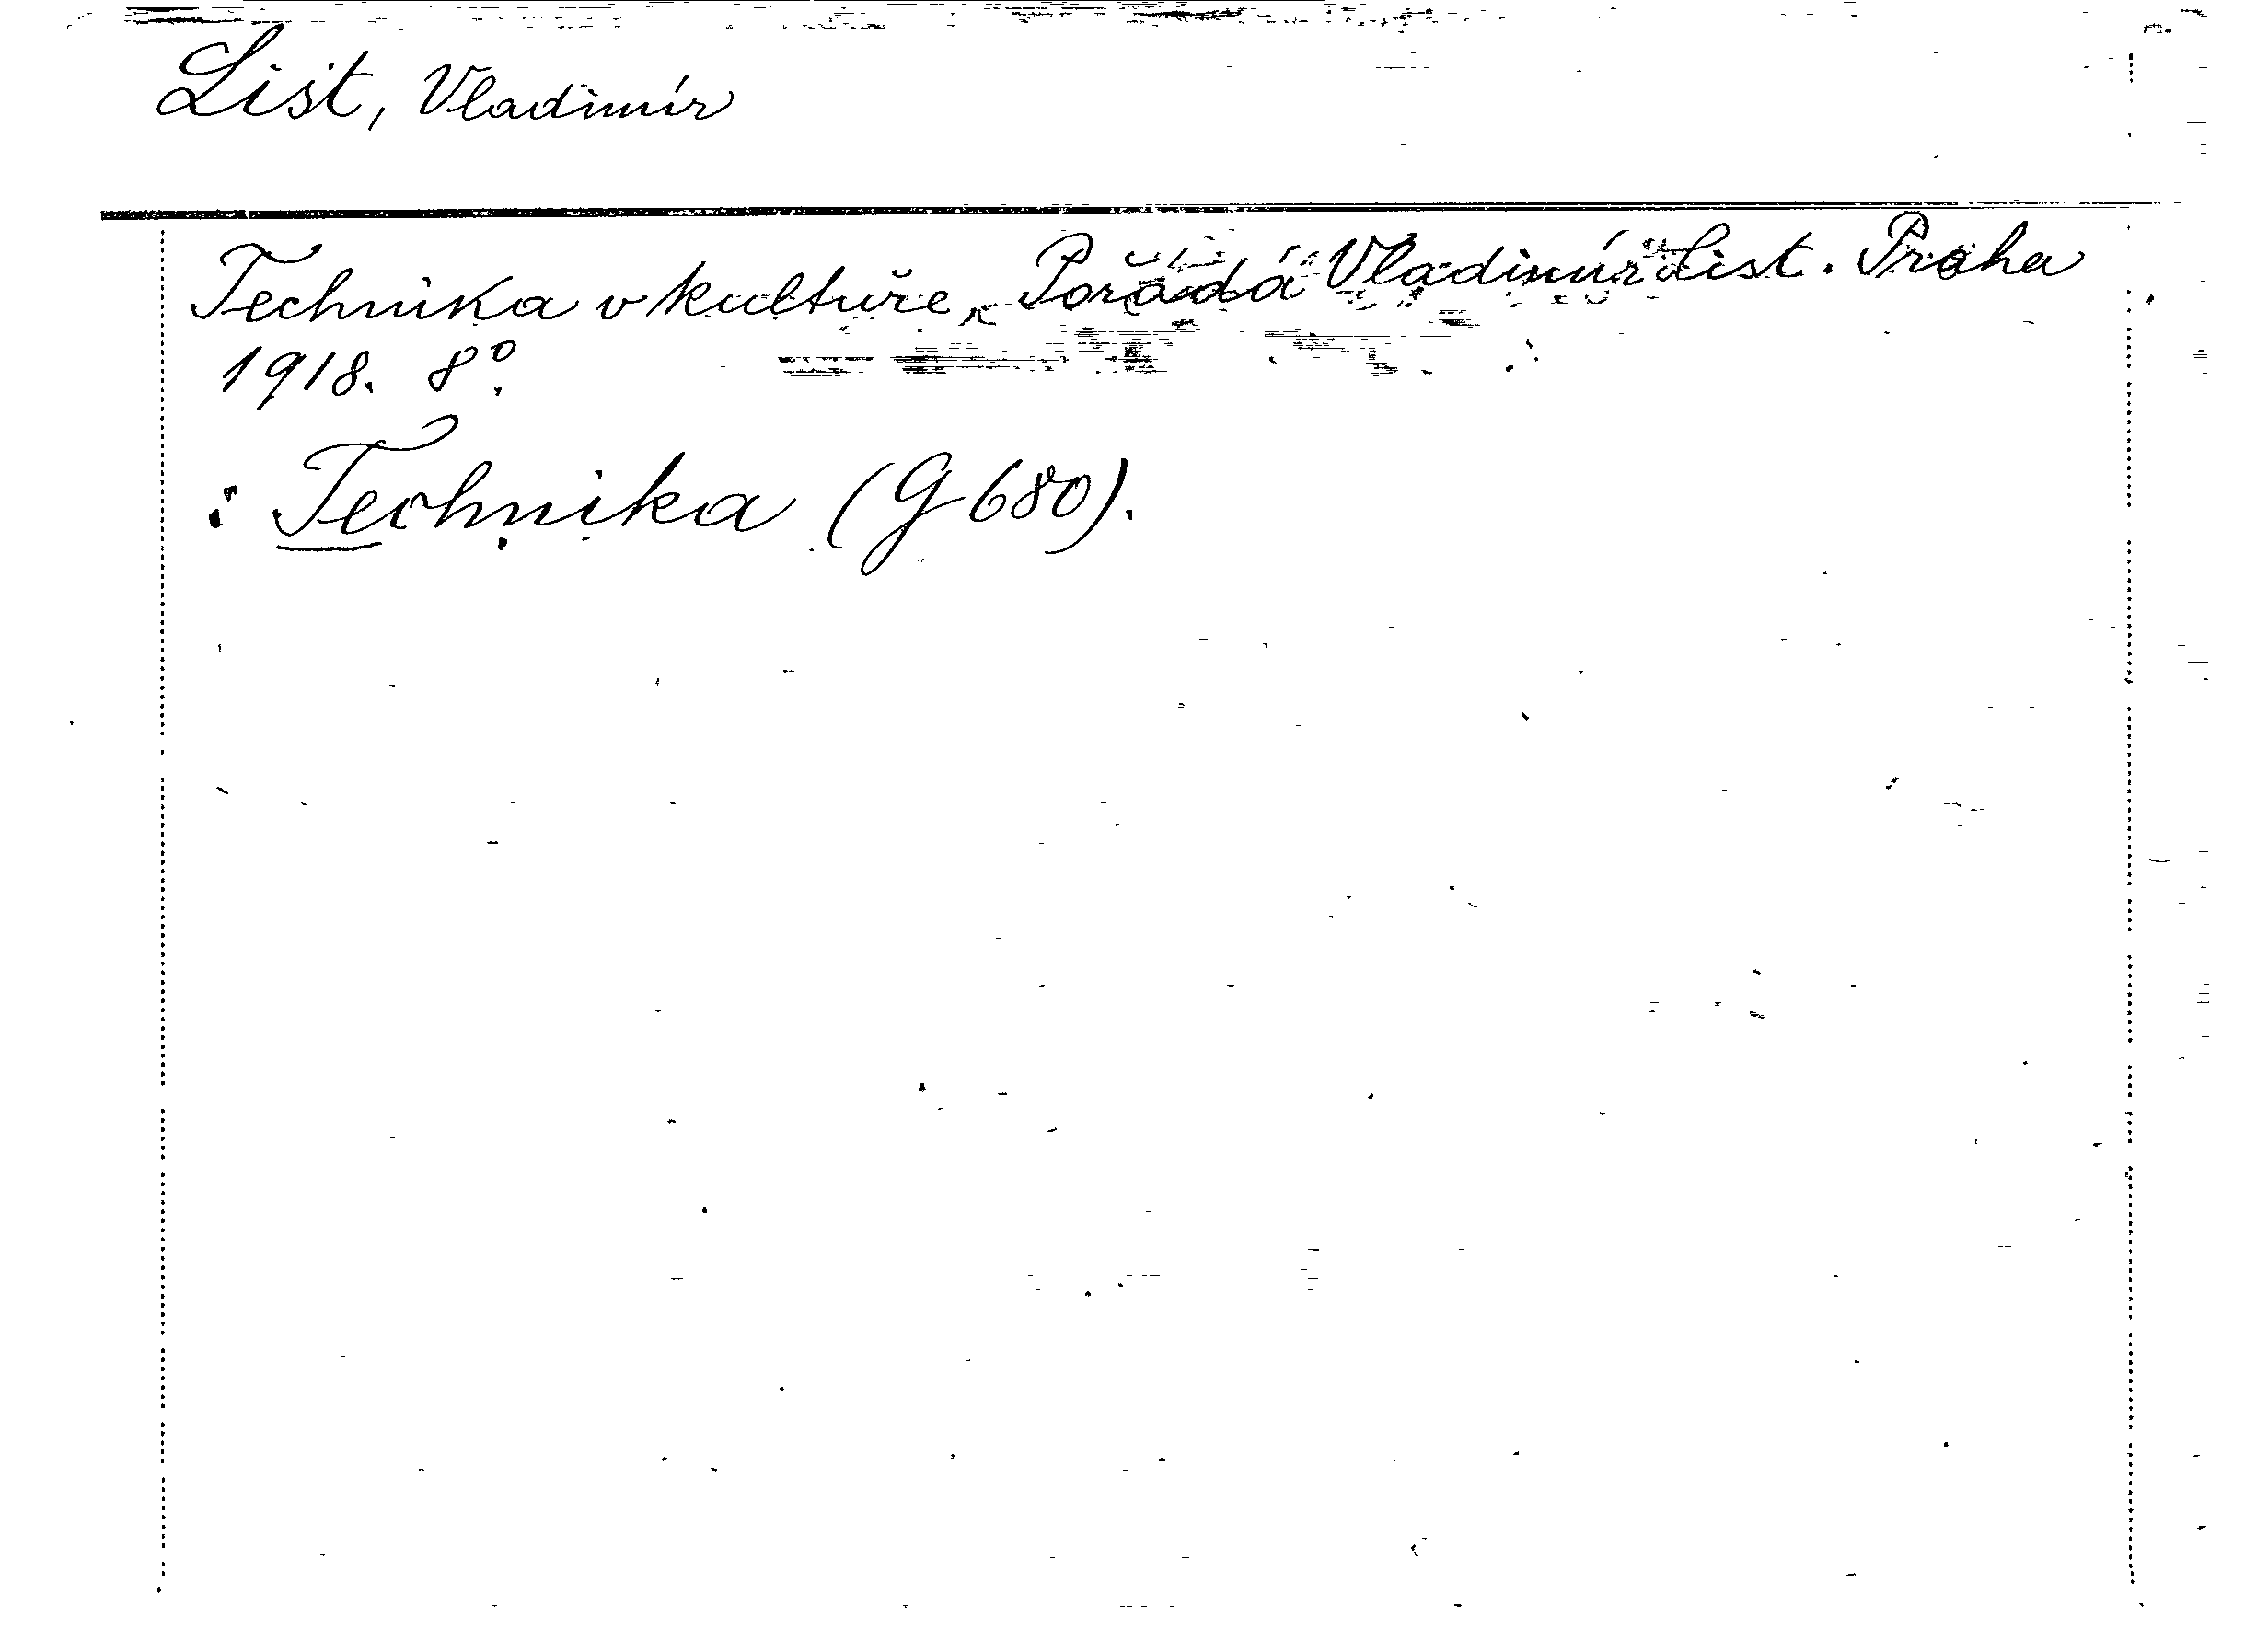 List, Vladimír
Technika v kultuře. Pořádá Vladimír List. Praha
1918. 8°.
: Technika (G 680).